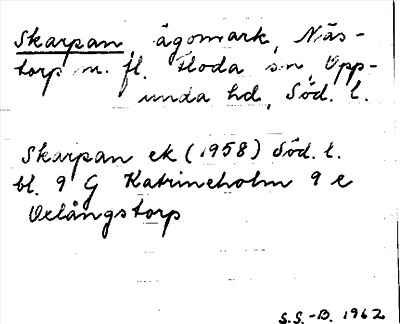 Skarpan, ägomark, Näs-
torp m. fl. Floda sn, Opp-
unda hd, Söd. l.
Skarpan ek (1958) Söd. l.
bl. 9 G Katrineholm 9 e
Oelångstorp
S.S.-B. 1962